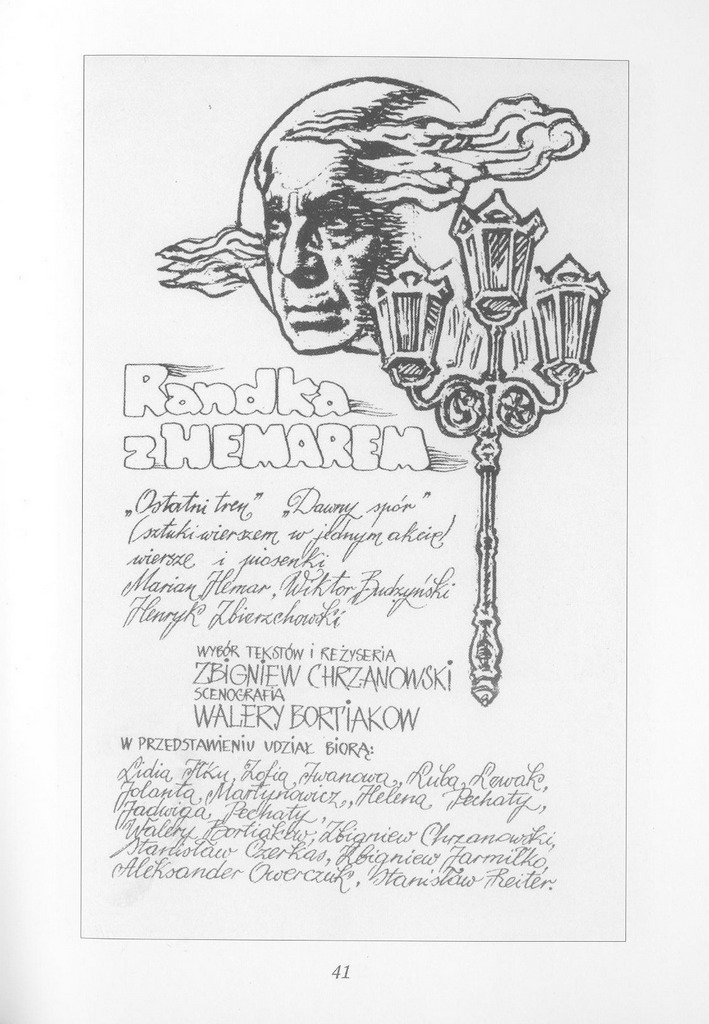 Randka
z HEMAREM
„Ostatni tren” „Dawny spór”
(sztuki wierszem w jednym akcie)
wiersze i piosenki
Marian Hemar, Wiktor Budzyński
Henryk Zbierzchowski
WYBÓR TEKSTÓW I REŻYSERIA
ZBIGNIEW CHRZANOWSKI
SCENOGRAFIA
WALERY BORTIAKOW
W PRZEDSTAWIENIU UDZIAŁ BIORĄ:
Lidia Zofia Iwanowa, Luba Lewak,
Jolanta Martynowicz, Helena Pechaty,
Jadwiga Pechaty,
Walery Bortiakow, Zbigniew Chrzanowski,
Stanisław Czerkas, Zbigniew Jarmiłko,
Aleksander Owerczuk, Stanisław Reiter.
41